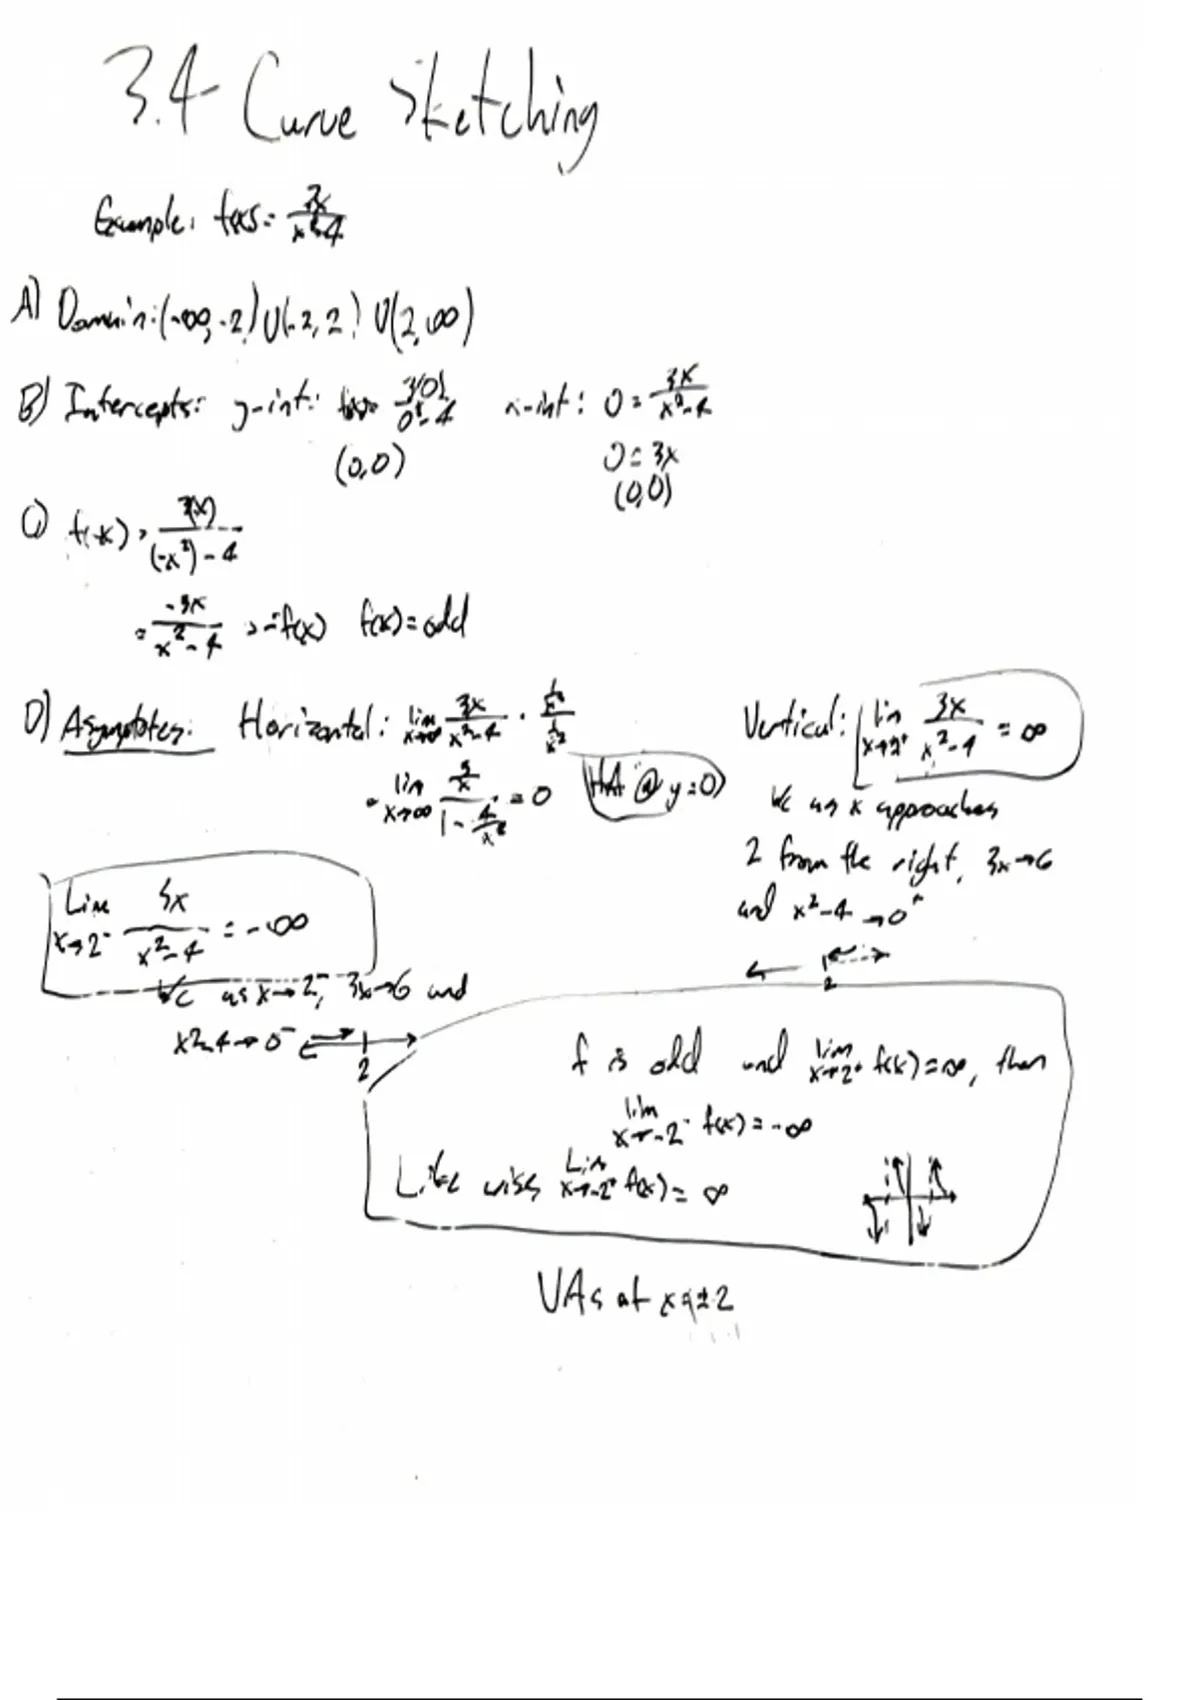 3.4 Curve Sketching
Example: f(x) = 3x/(x²-4)
A) Domain: (-∞, -2) U (-2, 2) U (2, ∞)
B) Intercepts: y-int: f(0)= 3(0)/(0²-4) x-int: 0 = 3x/(x²-4)
(0,0) 0 = 3x
(0,0)
C) f(-x) = 3(-x)/((-x²)-4)
= -3x/(x²-4) = -f(x) f(x) = odd
D) Asymptotes: Horizontal: lim x→∞ 3x/(x²-4) · (1/x²)/(1/x²)
= lim x→∞ (3/x)/(1 - 4/x²) = 0 HA @ y=0
Vertical: lim x→2⁺ 3x/(x²-4) = ∞
bc as x approaches
2 from the right, 3x→6
and x²-4 → 0⁺
2
Lim x→2⁻ 3x/(x²-4) = -∞
bc as x→2⁻, 3x→6 and
x²-4 → 0⁻
2
f is odd and lim x→2⁺ f(x) = ∞, then
lim x→-2⁻ f(x) = -∞
Likewise Lim x→-2⁺ f(x) = ∞
VAs at x=±2